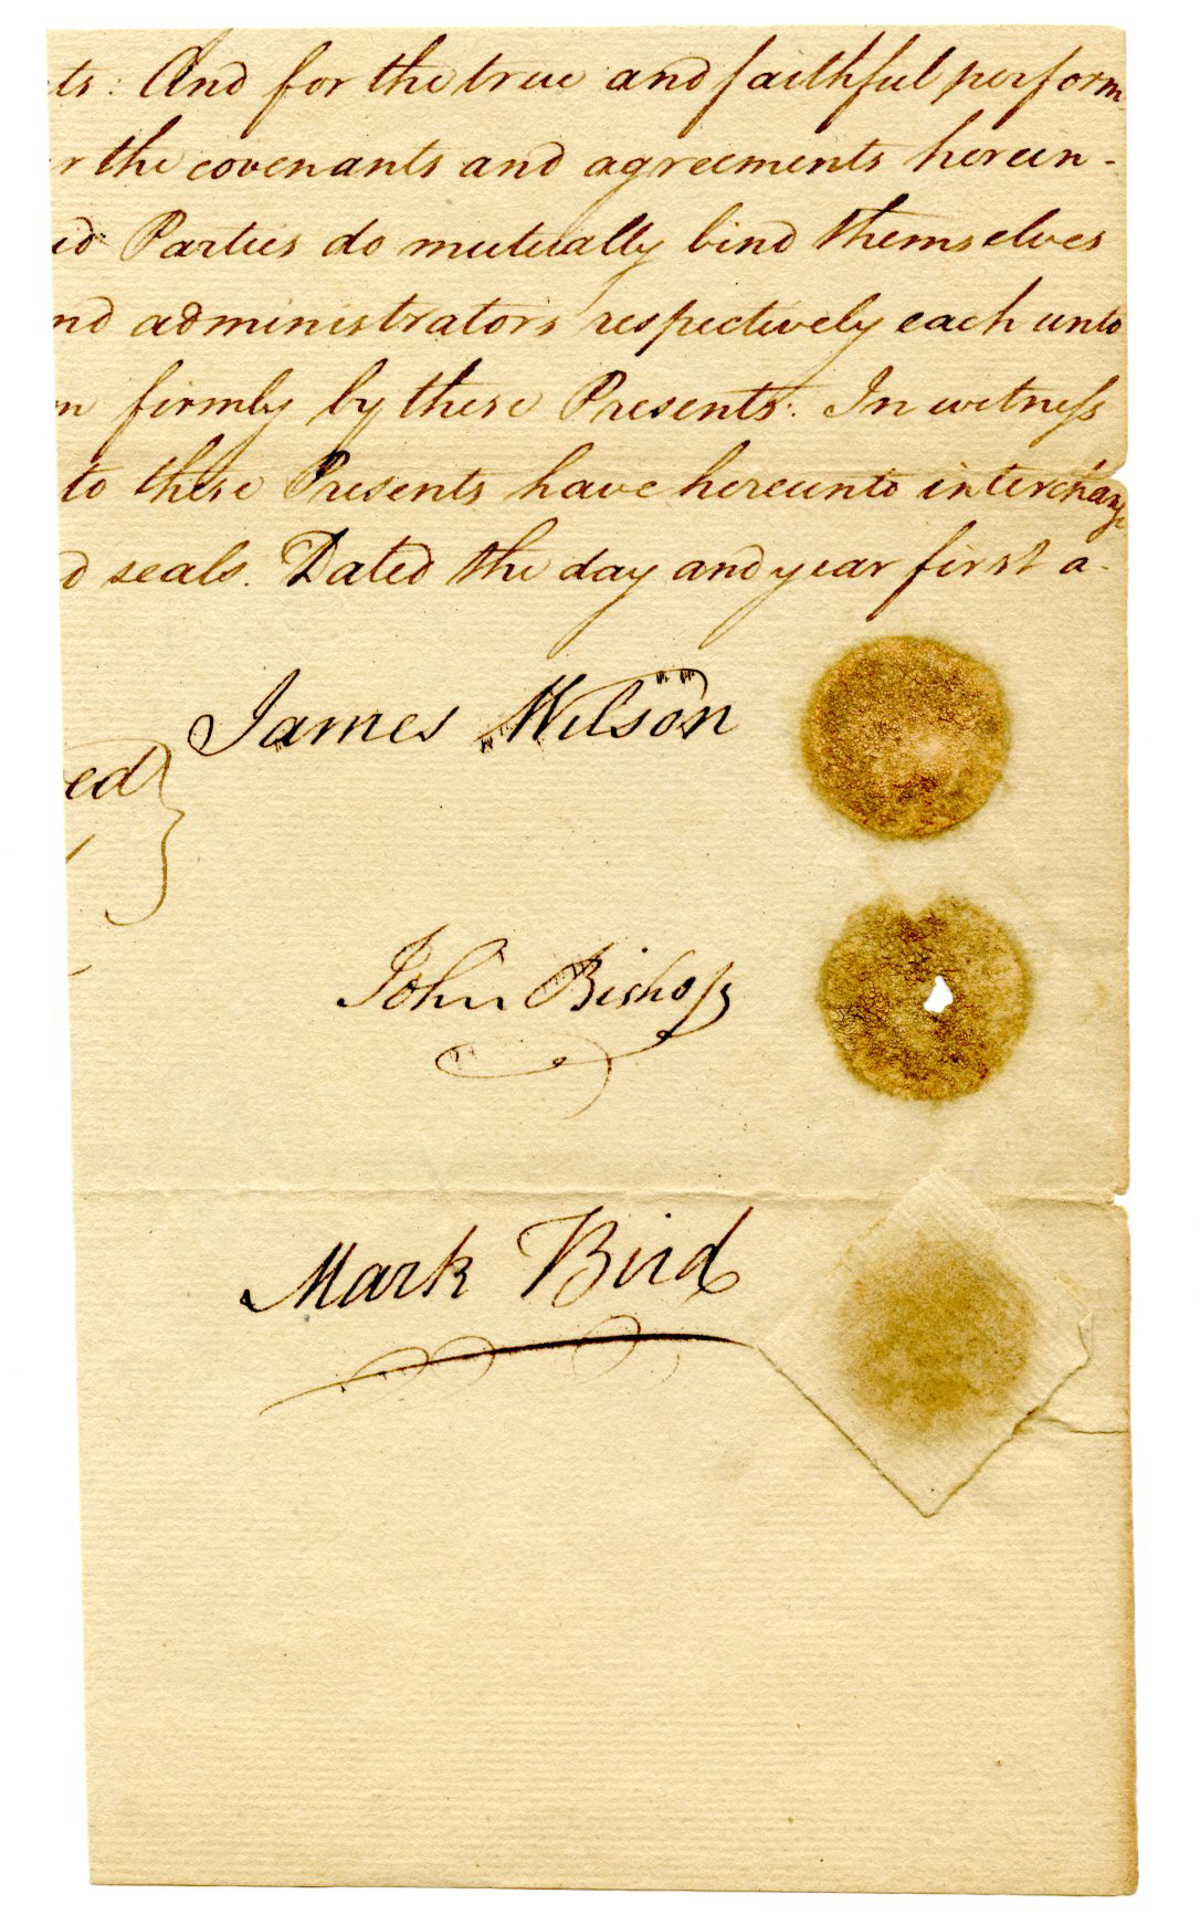 ts: And for the true and faithful perform
r the covenants and agreements herein-
id Parties do mutually bind themselves
nd administrators respectively each unto
m firmly by these Presents: In witneſs
to these Presents have hereunto interchang
d seals. Dated the day and year first a-
James Wilson
ed
John Bishop
Mark Bird